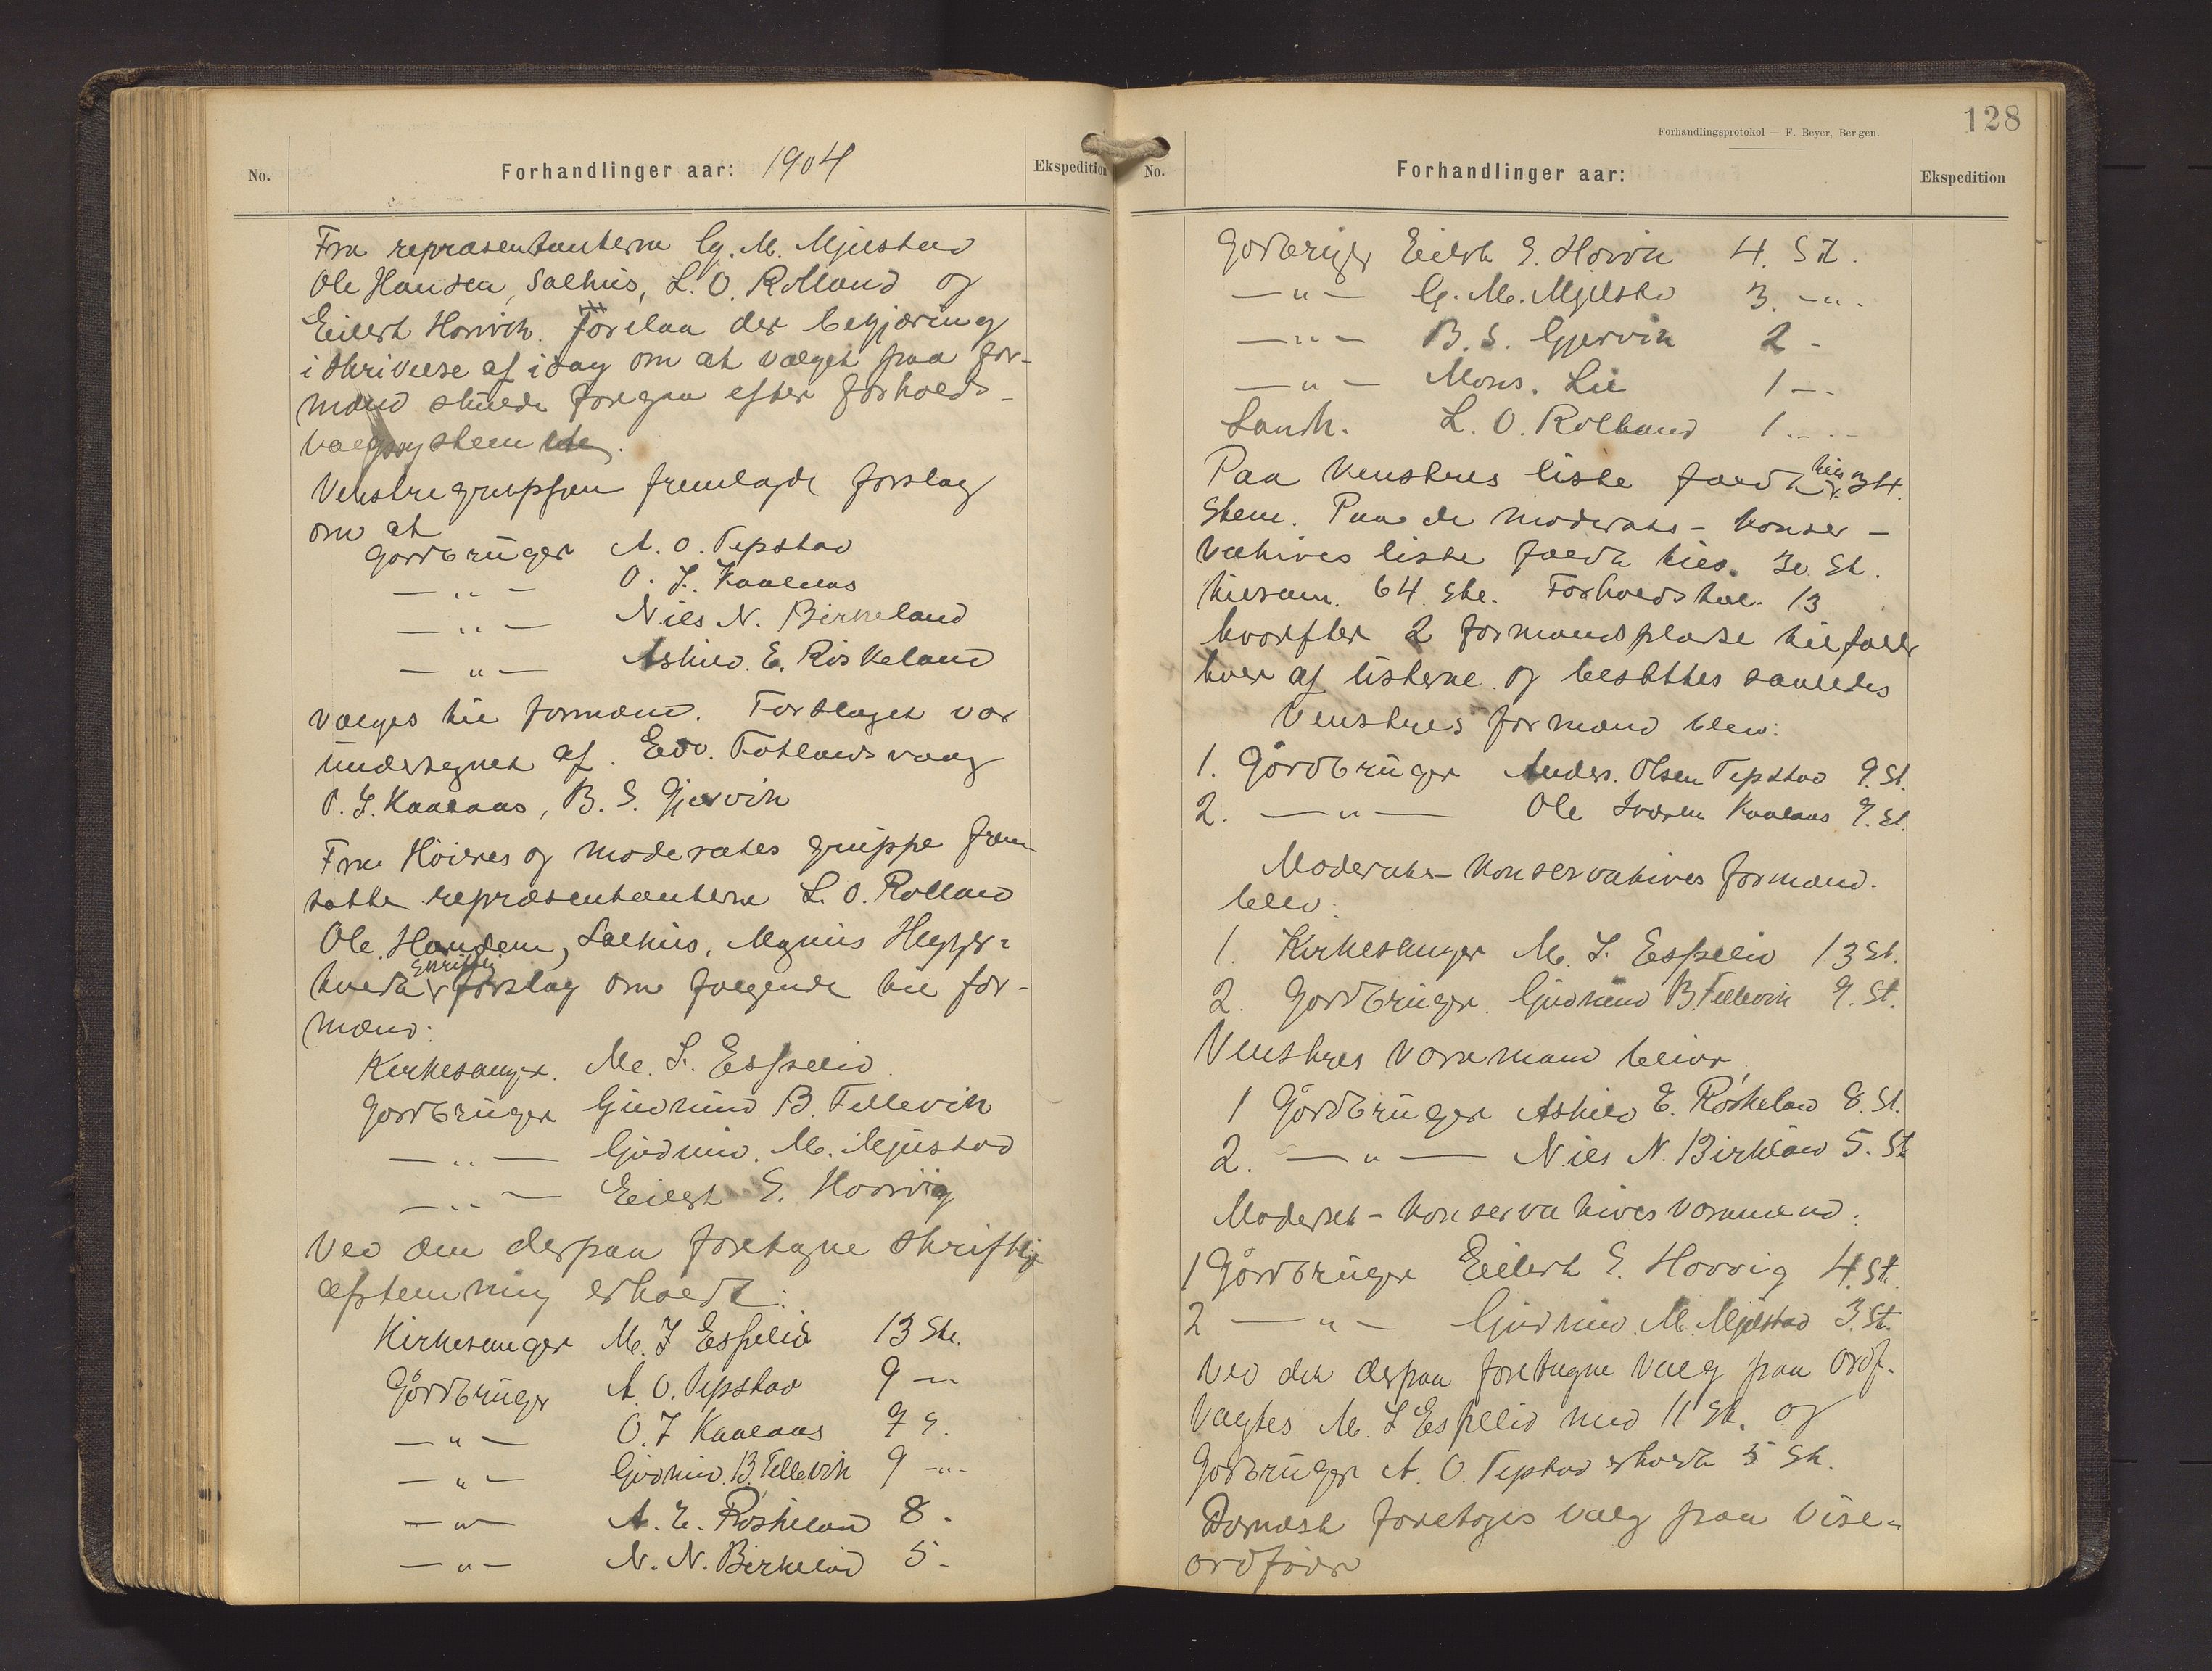 No.
Forhandlinger aar: 1904
Ekspedition
Fra repræsentanterne G. M. Mjelstad
Ole Hansen, Salhus, L. O. Rolland og
Eilert Horvik. forelaa der begjæring
i skrivelse af idag om at valget paa for-
mænd skulde foregaa efter forholds-
valgsystem
Venstregruppen fremlagde forslag
om at
Gardbruger A. O. Tepstad
— " — O. J. Kaalaas
— " — Nils N. Birkeland
— " — Askild. E. Röskeland
vælges til formænd. Forslaget var
undertegnet af. Edv. Fotlandsvaag
O. J. Kaalaas, B. S. Gjervik
Fra Høires og moderates gruppe frem-
satte repræsentanterne L. O. Rolland
Ole Hansen, Salhus, Magnus
skriftlig
forslag om følgende til for-
mænd:
Kirkesanger. M. S. Espelid
Gardbruger Gudmund B. Tellevik
— " — Gudmund. M. Mjelstad
— " — Eilert S. Horvig
Ved den derpaa foretagne skriftlige
afstemning erholdt:
Kirkesanger M. S Espelid 13 Ste.
Gårdbruger A. O. Tepstad 9 -"-
— " — O. J Kaalaas 9 S.
— " — Gudmund. B. Tellevik 9 -"-
— " — A. E. Röskeland 8.
— " — N. N. Birkeland 5-
128
Forhandlingsprotokol — F. Beyer, Bergen.
No.
Forhandlinger aar:
Ekspedition
Gardbruger Eilert S. Horvik 4. St.
— " — G. M. Mjelstad 3. -"-
— " — B. S. Gjervik 2 -
— " — Mons. Lie 1 --
Landh. L. O. Rolland 1. --
Paa Venstres liste faldt tils. 34.
Stem. Paa de moderate-konser-
vatives liste faldt tils. 30. St.
tilsam. 64 Ste. Forholdstal. 13
hvorefter 2 formandspladse tilfalder
hver af listerne og besættes saaledes
Venstres formænd blev:
1. Gårdbruger Anders. Olsen Tepstad 9. St.
2. — " — Ole Kaalaas 9. St.
Moderate-konservatives formænd.
blev:
1. Kirkesanger M. S. Espelid 13 St.
2. Gardbruger. Gudmund B. Tellevik 9. St.
Venstres varamænd blev
1 Gårdbruger Askild E. Röskeland 8. St.
2. — " — Nils N. Birkeland 5. St
Moderat-konservatives varamænd:
1 Gårdbruger Eilert S. Horvig 4. St.
2 — " — Gudmund. M. Mjelstad 3. St.
Ved det derpaa foretagne valg paa Ordf.
valgtes M. S Espelid med 11 St. og
Gardbruger A. O. Tepstad erholdt 5 St.
Dernæst foretoges valg paa Vise-
ordfører